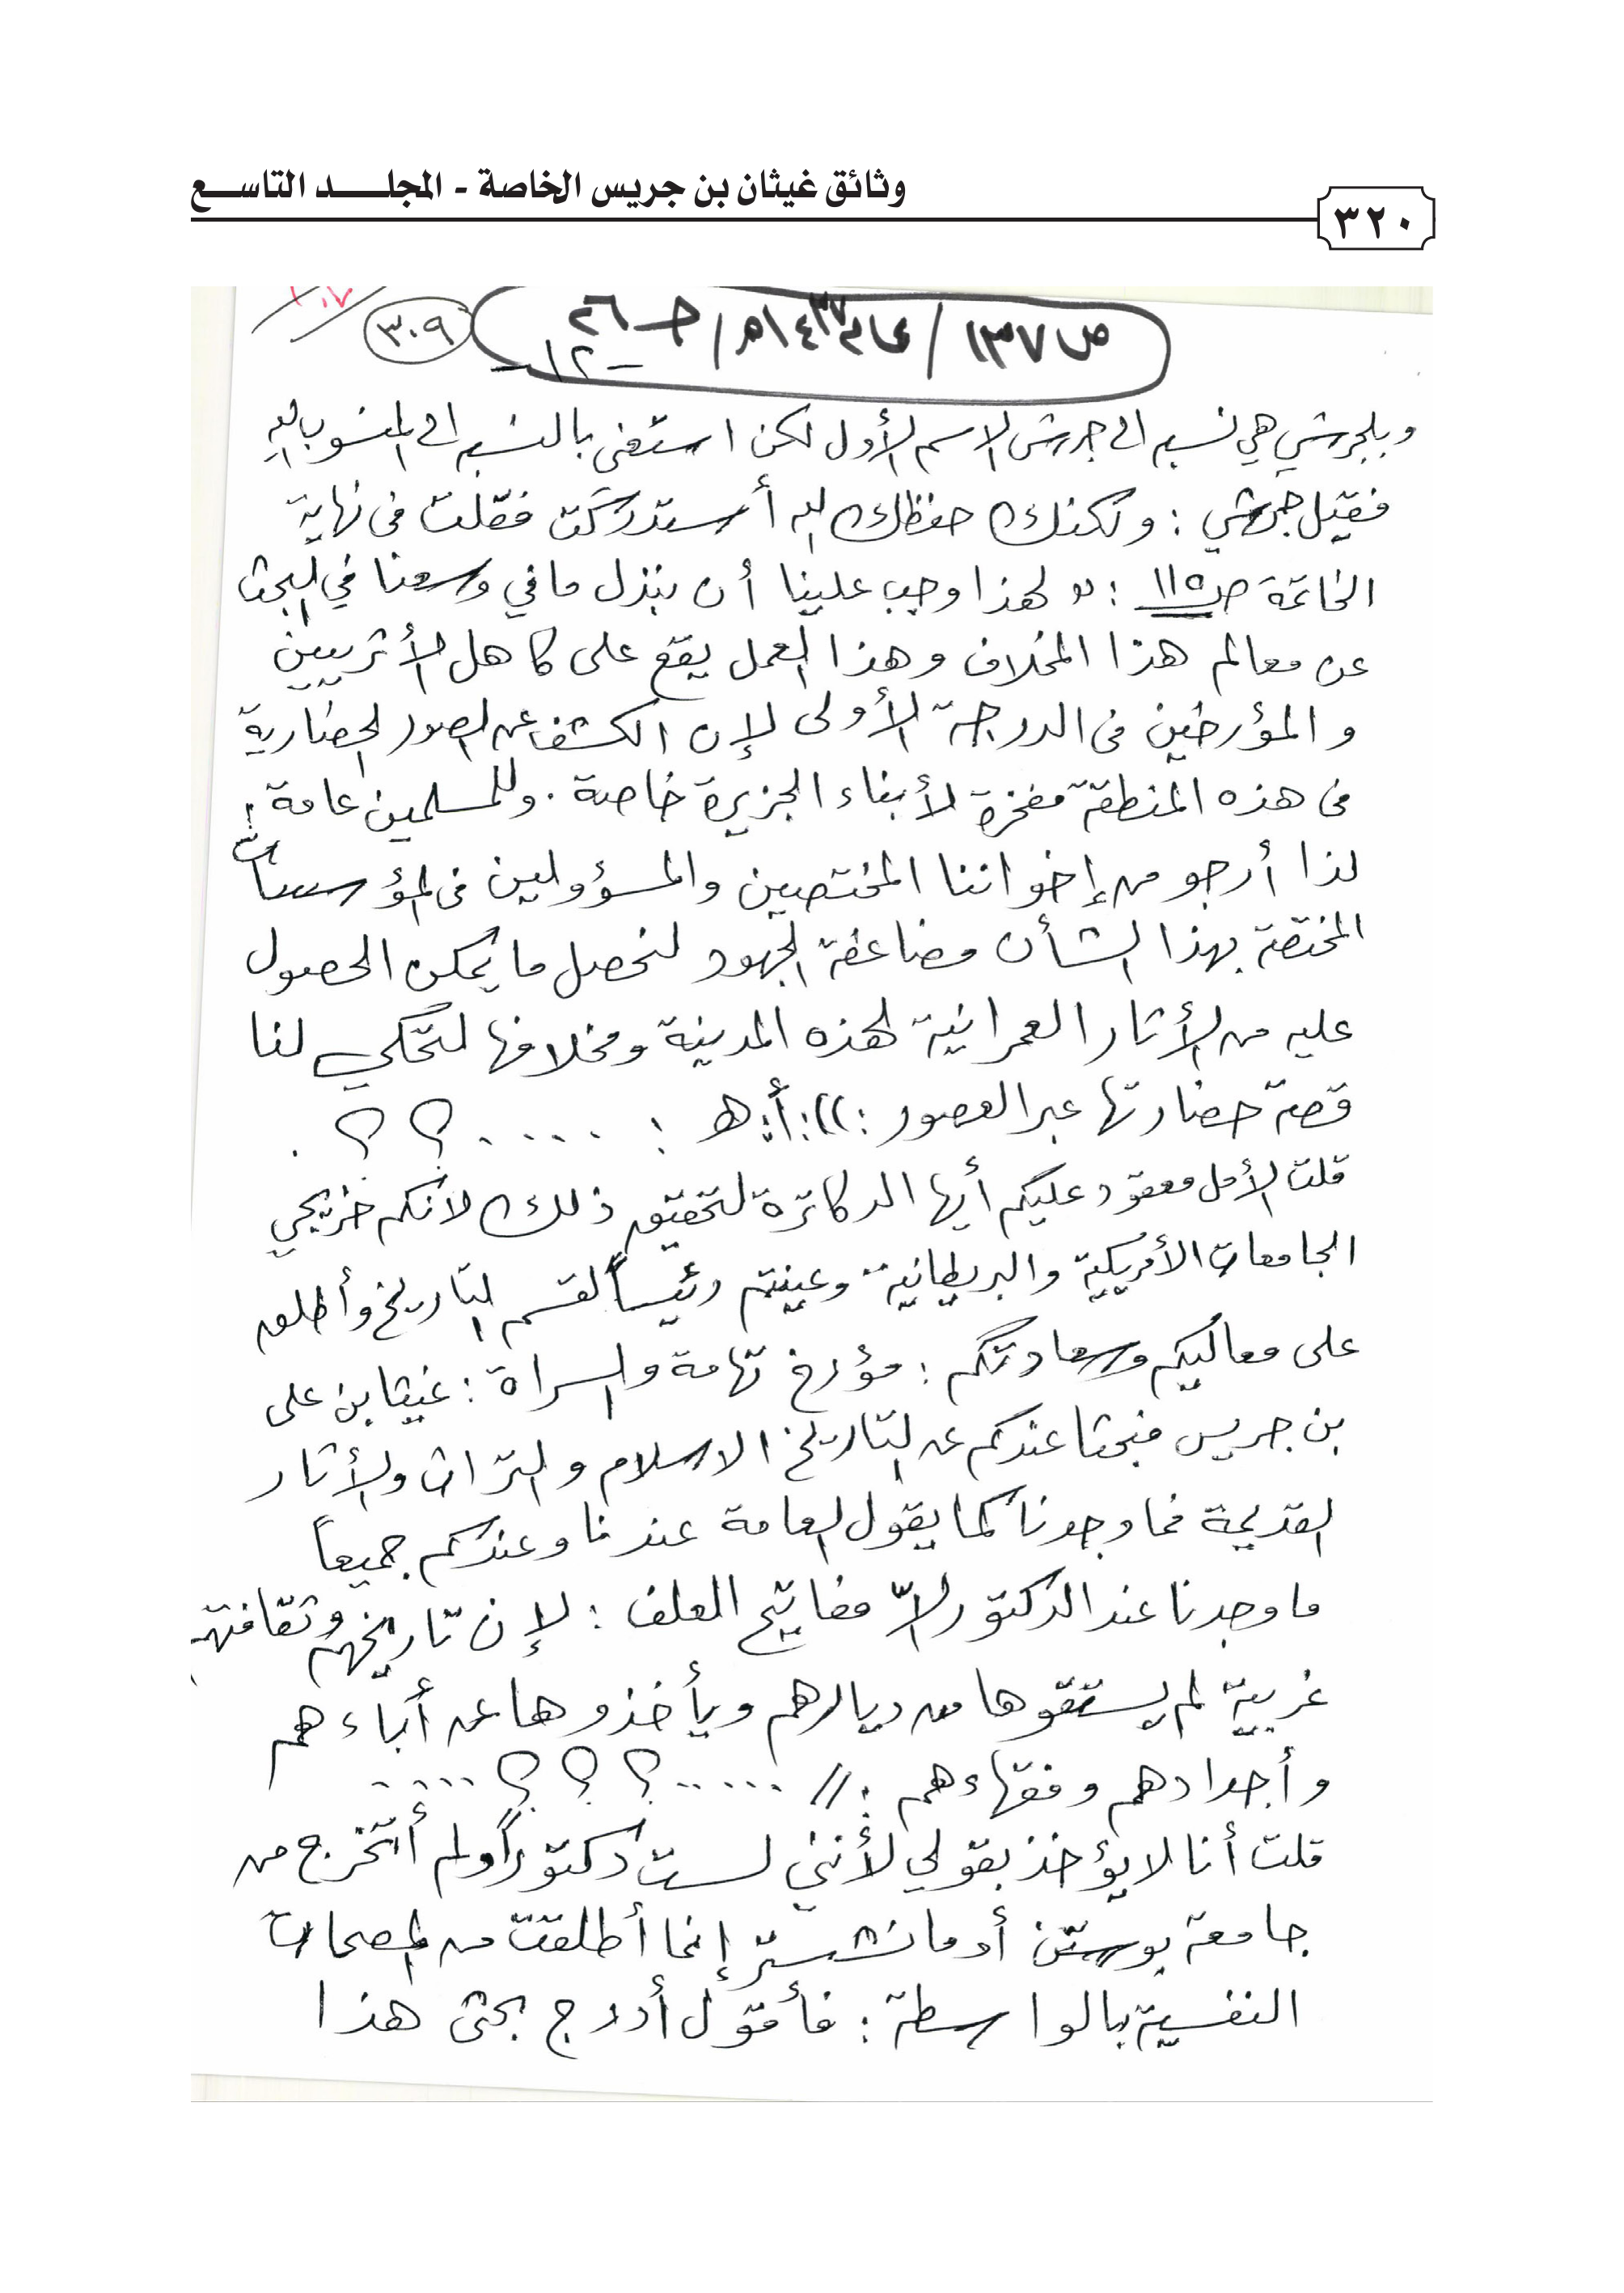 وثائق غيثان بن جريس الخاصة - المجلـــد التاســع
٣٢٠
ص ١٣٧ / عام ١٤٣٧هـ / جـ ٢٦
٣٠٩
- ١٢ -
وبلجرشي هي نسبه الى جرش الاسم الأول لكن استغنى بالنسبه الى المنسوب اليه
فقيل جرشي : ولكنك حفظك الله أستدركت فقلت فى نهاية
الخاتمة ص١١٥ : « لهذا وجب علينا أن نبذل ما في وسعنا في البحث
عن معالم هذا المخلاف وهذا العمل يقع على كاهل الأثريين
و المؤرخين فى الدرجة الأولى لإن الكشف عن الصور الحضارية
فى هذه المنطقة مفخرة لأبناء الجزيرة خاصة . وللمسلمين عامة :
لذا أرجو من إخواننا المختصين والمسؤولين فى المؤسسات
المختصة بهذا الشأن مضاعفة الجهود لنحصل ما يمكن الحصول
عليه من الأثار العمرانية لهذه المدينة ومخلافها لتحكي لنا
قصة حضارتها عبر العصور : )) : أ : هـ : ..... ؟ ؟ .
قلت الأمل معقود عليكم أيها الدكاترة لتحقيق ذلك لانكم خريجي
الجامعات الأمريكية والبريطانية وعينتم رئيساً لقسم التاريخ وأطلق
على معاليكم وسعادتكم : مؤرخ تهامة والسراة : غيثا بن على
بن جريس فبحثنا عندكم عن التاريخ الاسلام والتراث والأثار
القديمة فما وجدنا كما يقول العامة عندنا وعندكم جميعاً
ما وجدنا عند الدكتور إلاّ مفاتيح العلف : لإن تاريخهم وثقافتهم
غربية لم يستقوها من ديارهم ويأخذوها عن أباءهم
وأجدادهم وفقهاءهم : // ..... ؟ ؟ ؟ ....
قلت أنا لا يؤخذ بقولي لأنني لست دكتوراً ولم أتخرج من
جامعة بوستن أو مانشستر إنما أطلقت من المصحات
النفسية بالواسطة : فأقول أدرج بحثى هذا